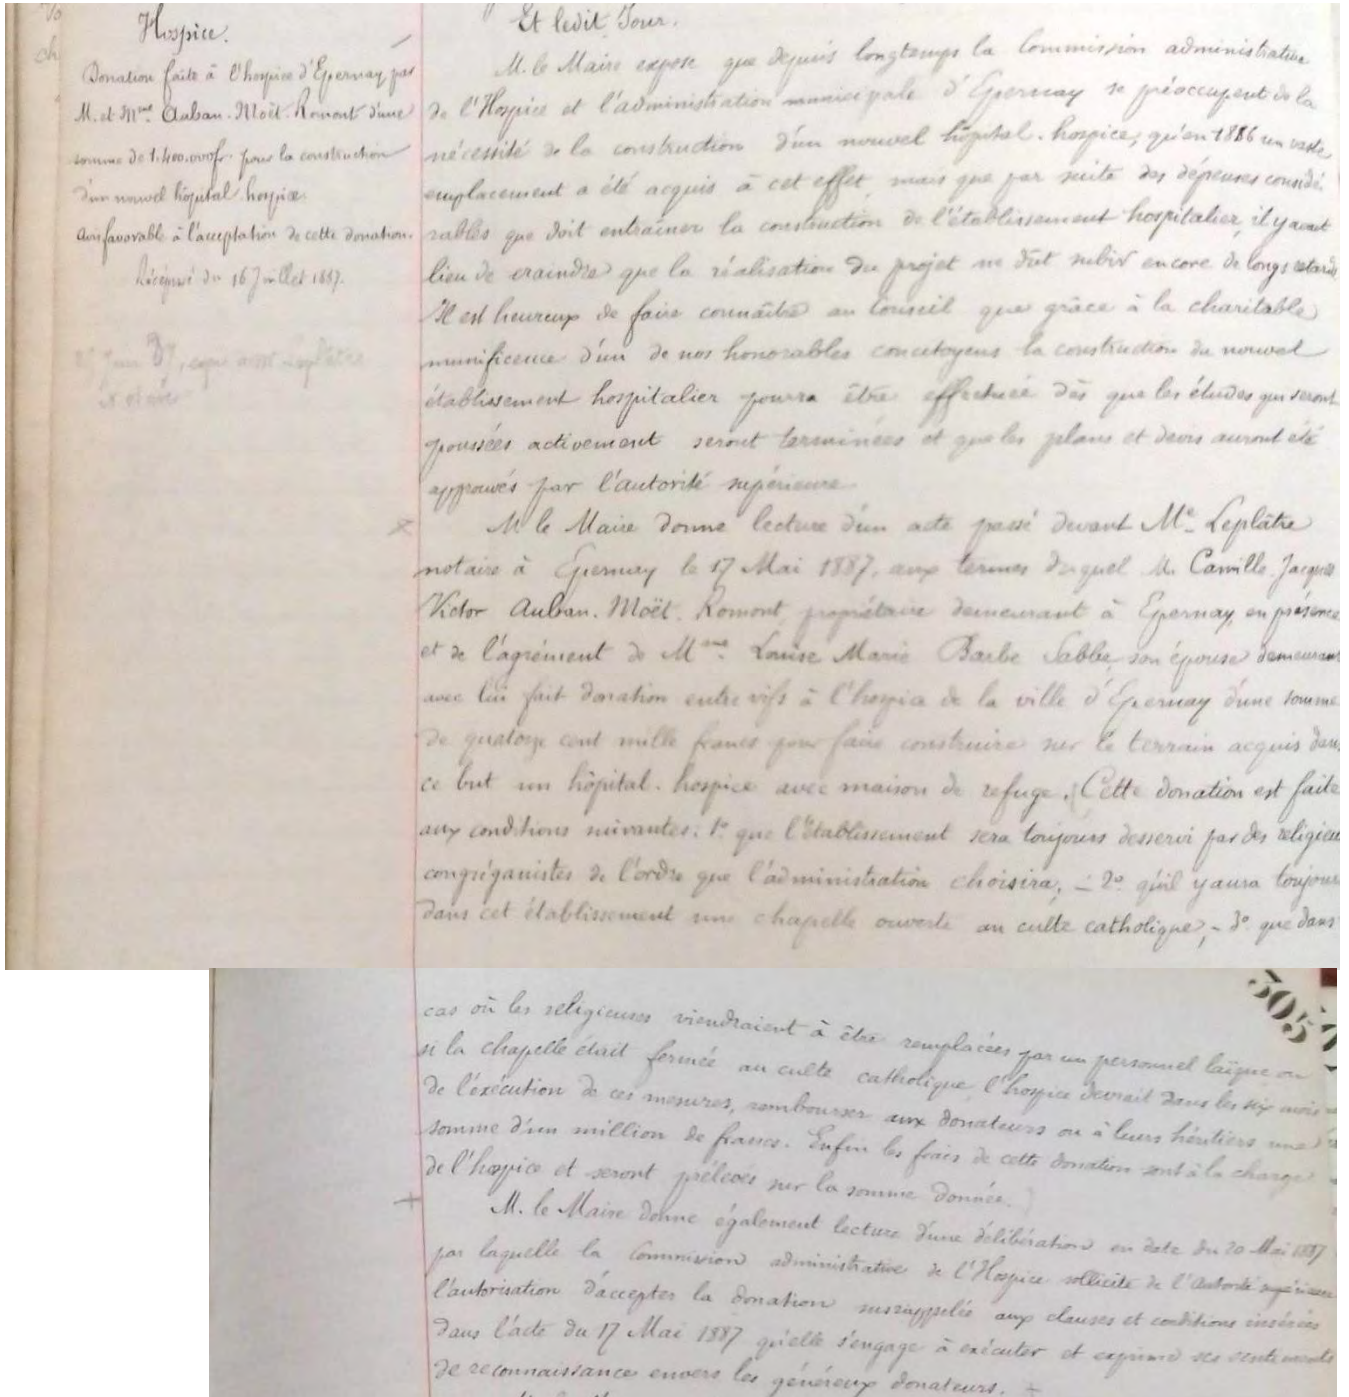 Hospice.
Donation faite à l'hospice d'Epernay par
M. et Mme Auban-Moët-Romont d'une
somme de 1.400.000 fr. pour la construction
d'un nouvel hôpital-hospice.
Avis favorable à l'acceptation de cette donation.
Récépissé du 16 Juillet 1887.
copie à M. Leplâtre
Notaire
Et ledit Jour.
M. le Maire expose que depuis longtemps la Commission administrative
de l'Hospice et l'administration municipale d'Epernay se préoccupent de la
nécessité de la construction d'un nouvel hôpital-hospice, qu'en 1886 un vaste
emplacement a été acquis à cet effet, mais que par suite des dépenses considé-
rables que doit entraîner la construction de l'établissement hospitalier, il y avait
lieu de craindre que la réalisation du projet ne dût subir encore de longs retards.
Il est heureux de faire connaître au Conseil que grâce à la charitable
munificence d'un de nos honorables concitoyens la construction du nouvel
établissement hospitalier pourra être effectuée dès que les études qui seront
poussées activement seront terminées et que les plans et devis auront été
approuvés par l'autorité supérieure.
M. le Maire donne lecture d'un acte passé devant Me Leplâtre
notaire à Epernay le 17 Mai 1887, aux termes duquel M. Camille Jacques
Victor Auban-Moët-Romont, propriétaire demeurant à Epernay, en présence
et de l'agrément de Mme Louise Marie Barbe Sabbe, son épouse demeurant
avec lui fait donation entre vifs à l'hospice de la ville d'Epernay d'une somme
de quatorze cent mille francs pour faire construire sur le terrain acquis dans
ce but un hôpital-hospice avec maison de refuge. (Cette donation est faite
aux conditions suivantes: 1° que l'établissement sera toujours desservi par des religieu
congréganistes de l'ordre que l'administration choisira; - 2° qu'il y aura toujours
dans cet établissement une chapelle ouverte au culte catholique; - 3° que dans
305
cas où les religieuses viendraient à être remplacées par un personnel laïque ou
si la chapelle était fermée au culte catholique, l'hospice devrait dans les six mois
de l'exécution de ces mesures, rembourser aux donateurs ou à leurs héritiers une
somme d'un million de francs. Enfin les frais de cette donation sont à la charge
de l'hospice et seront prélevés sur la somme donnée.)
M. le Maire donne également lecture d'une délibération en date du 20 Mai 1887
par laquelle la Commission administrative de l'Hospice sollicite de l'Autorité supérieure
l'autorisation d'accepter la donation susrappelée aux clauses et conditions insérées
dans l'acte du 17 Mai 1887 qu'elle s'engage à exécuter et exprime ses sentiments
de reconnaissance envers les généreux donateurs.